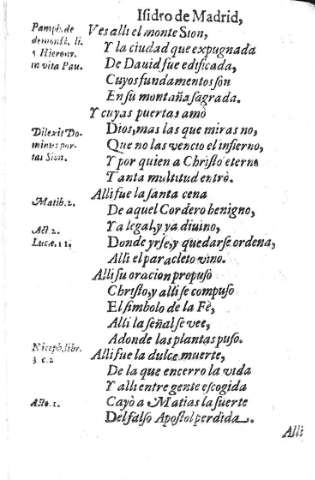 Isidro de Madrid,
Pamph. de
demonst. li.
5 Hieron.
in vita Pau.
Ves alli el monte Sion,
Y la ciudad que expugnada
De Dauid fue edificada,
Cuyos fundamentos son
En su montaña sagrada.
Y cuyas puertas amò
Dilexit Do-
minus por-
tas Sion.
Dios, mas las que miras no,
Que no las vencio el infierno,
Y por quien a Christo eterno
Tanta multitud entrò.
Alli fue la santa cena
Matth. 2.
De aquel Cordero benigno,
Act. 2.
Ya legal, y ya diuino,
Lucæ. 11,
Donde yrse, y quedarse ordena,
Alli el paracleto vino.
Alli su oracion propuso
Christo, y alli se compuso
El simbolo de la Fè,
Alli la señal se vee,
Adonde las plantas puso.
Niceph. libr.
3. c. 2
Alli fue la dulce muerte,
De la que encerro la vida
Y alli entre gente escogida
Acto. 1.
Cayò a Matias la suerte
Del falso Apostol perdida.
Alli